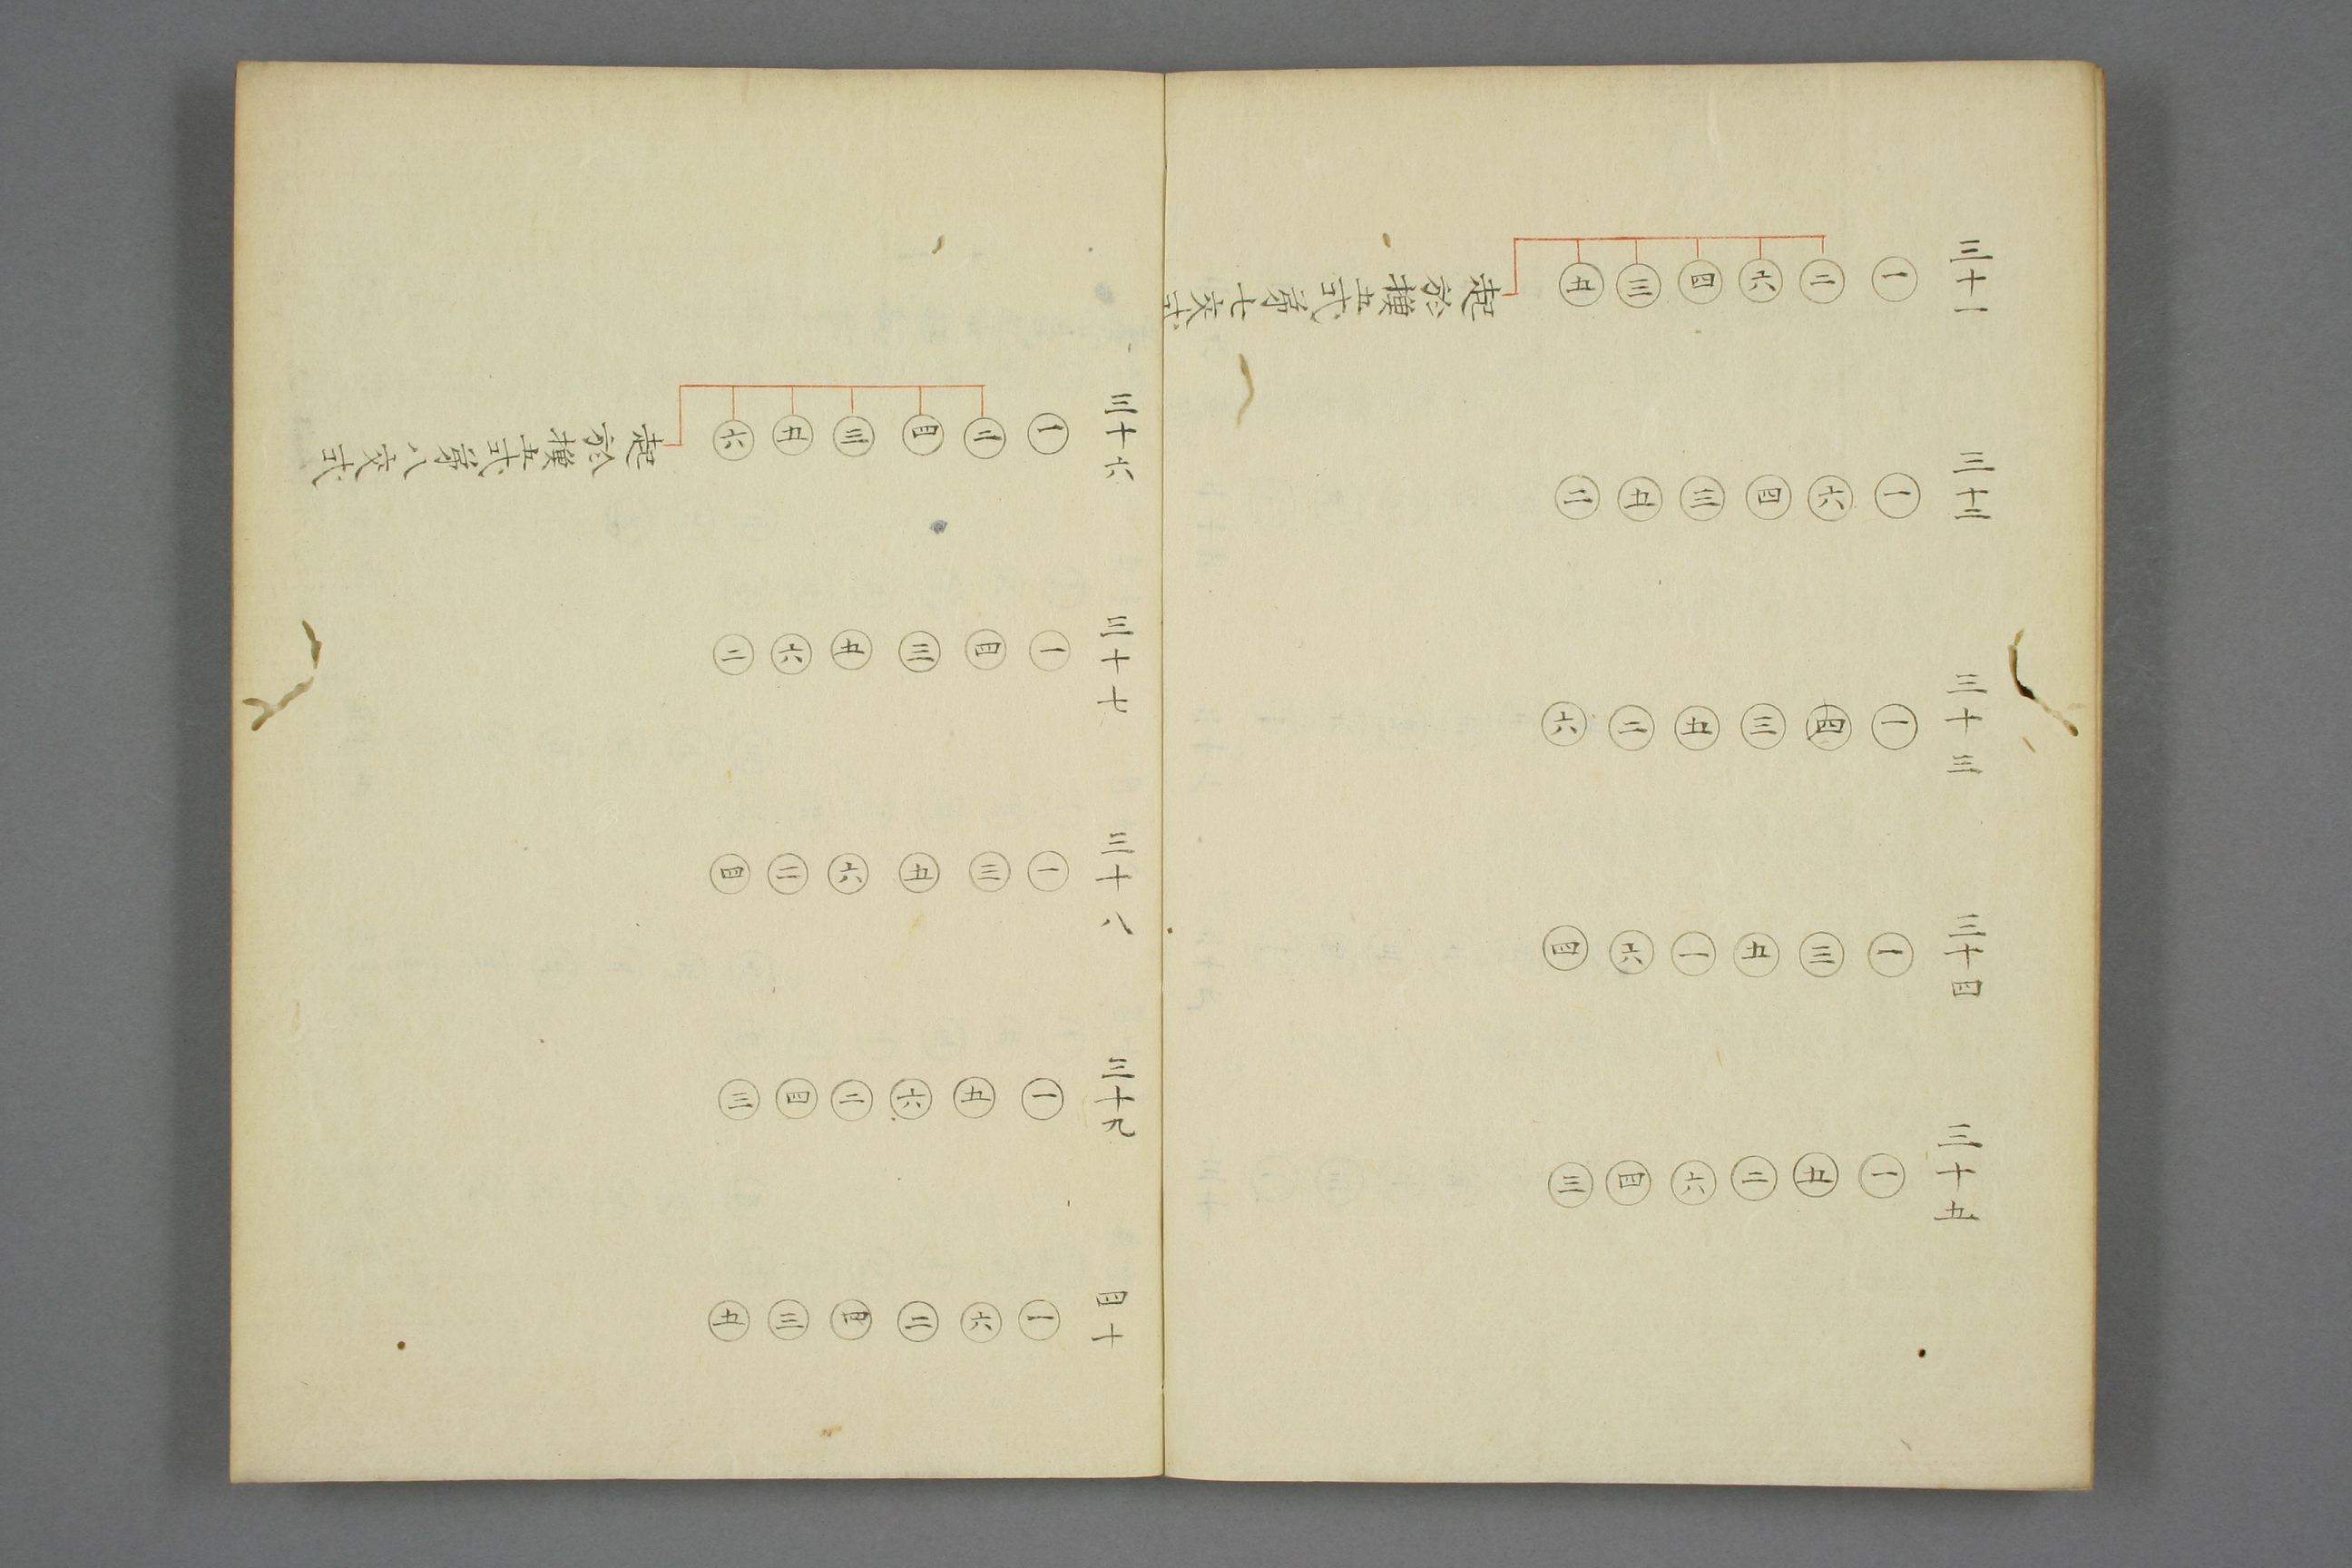 三十一
一二六四三五
起於換五式第七交式
三十二
一六四三五二
三十三
一四三五二六
三十四
一三五一六四
三十五
一五二六四三
三十六
一二四三五六
起於換五式第八交式
三十七
一四三五六二
三十八
一三五六二四
三十九
一五六二四三
四十
一六二四三五